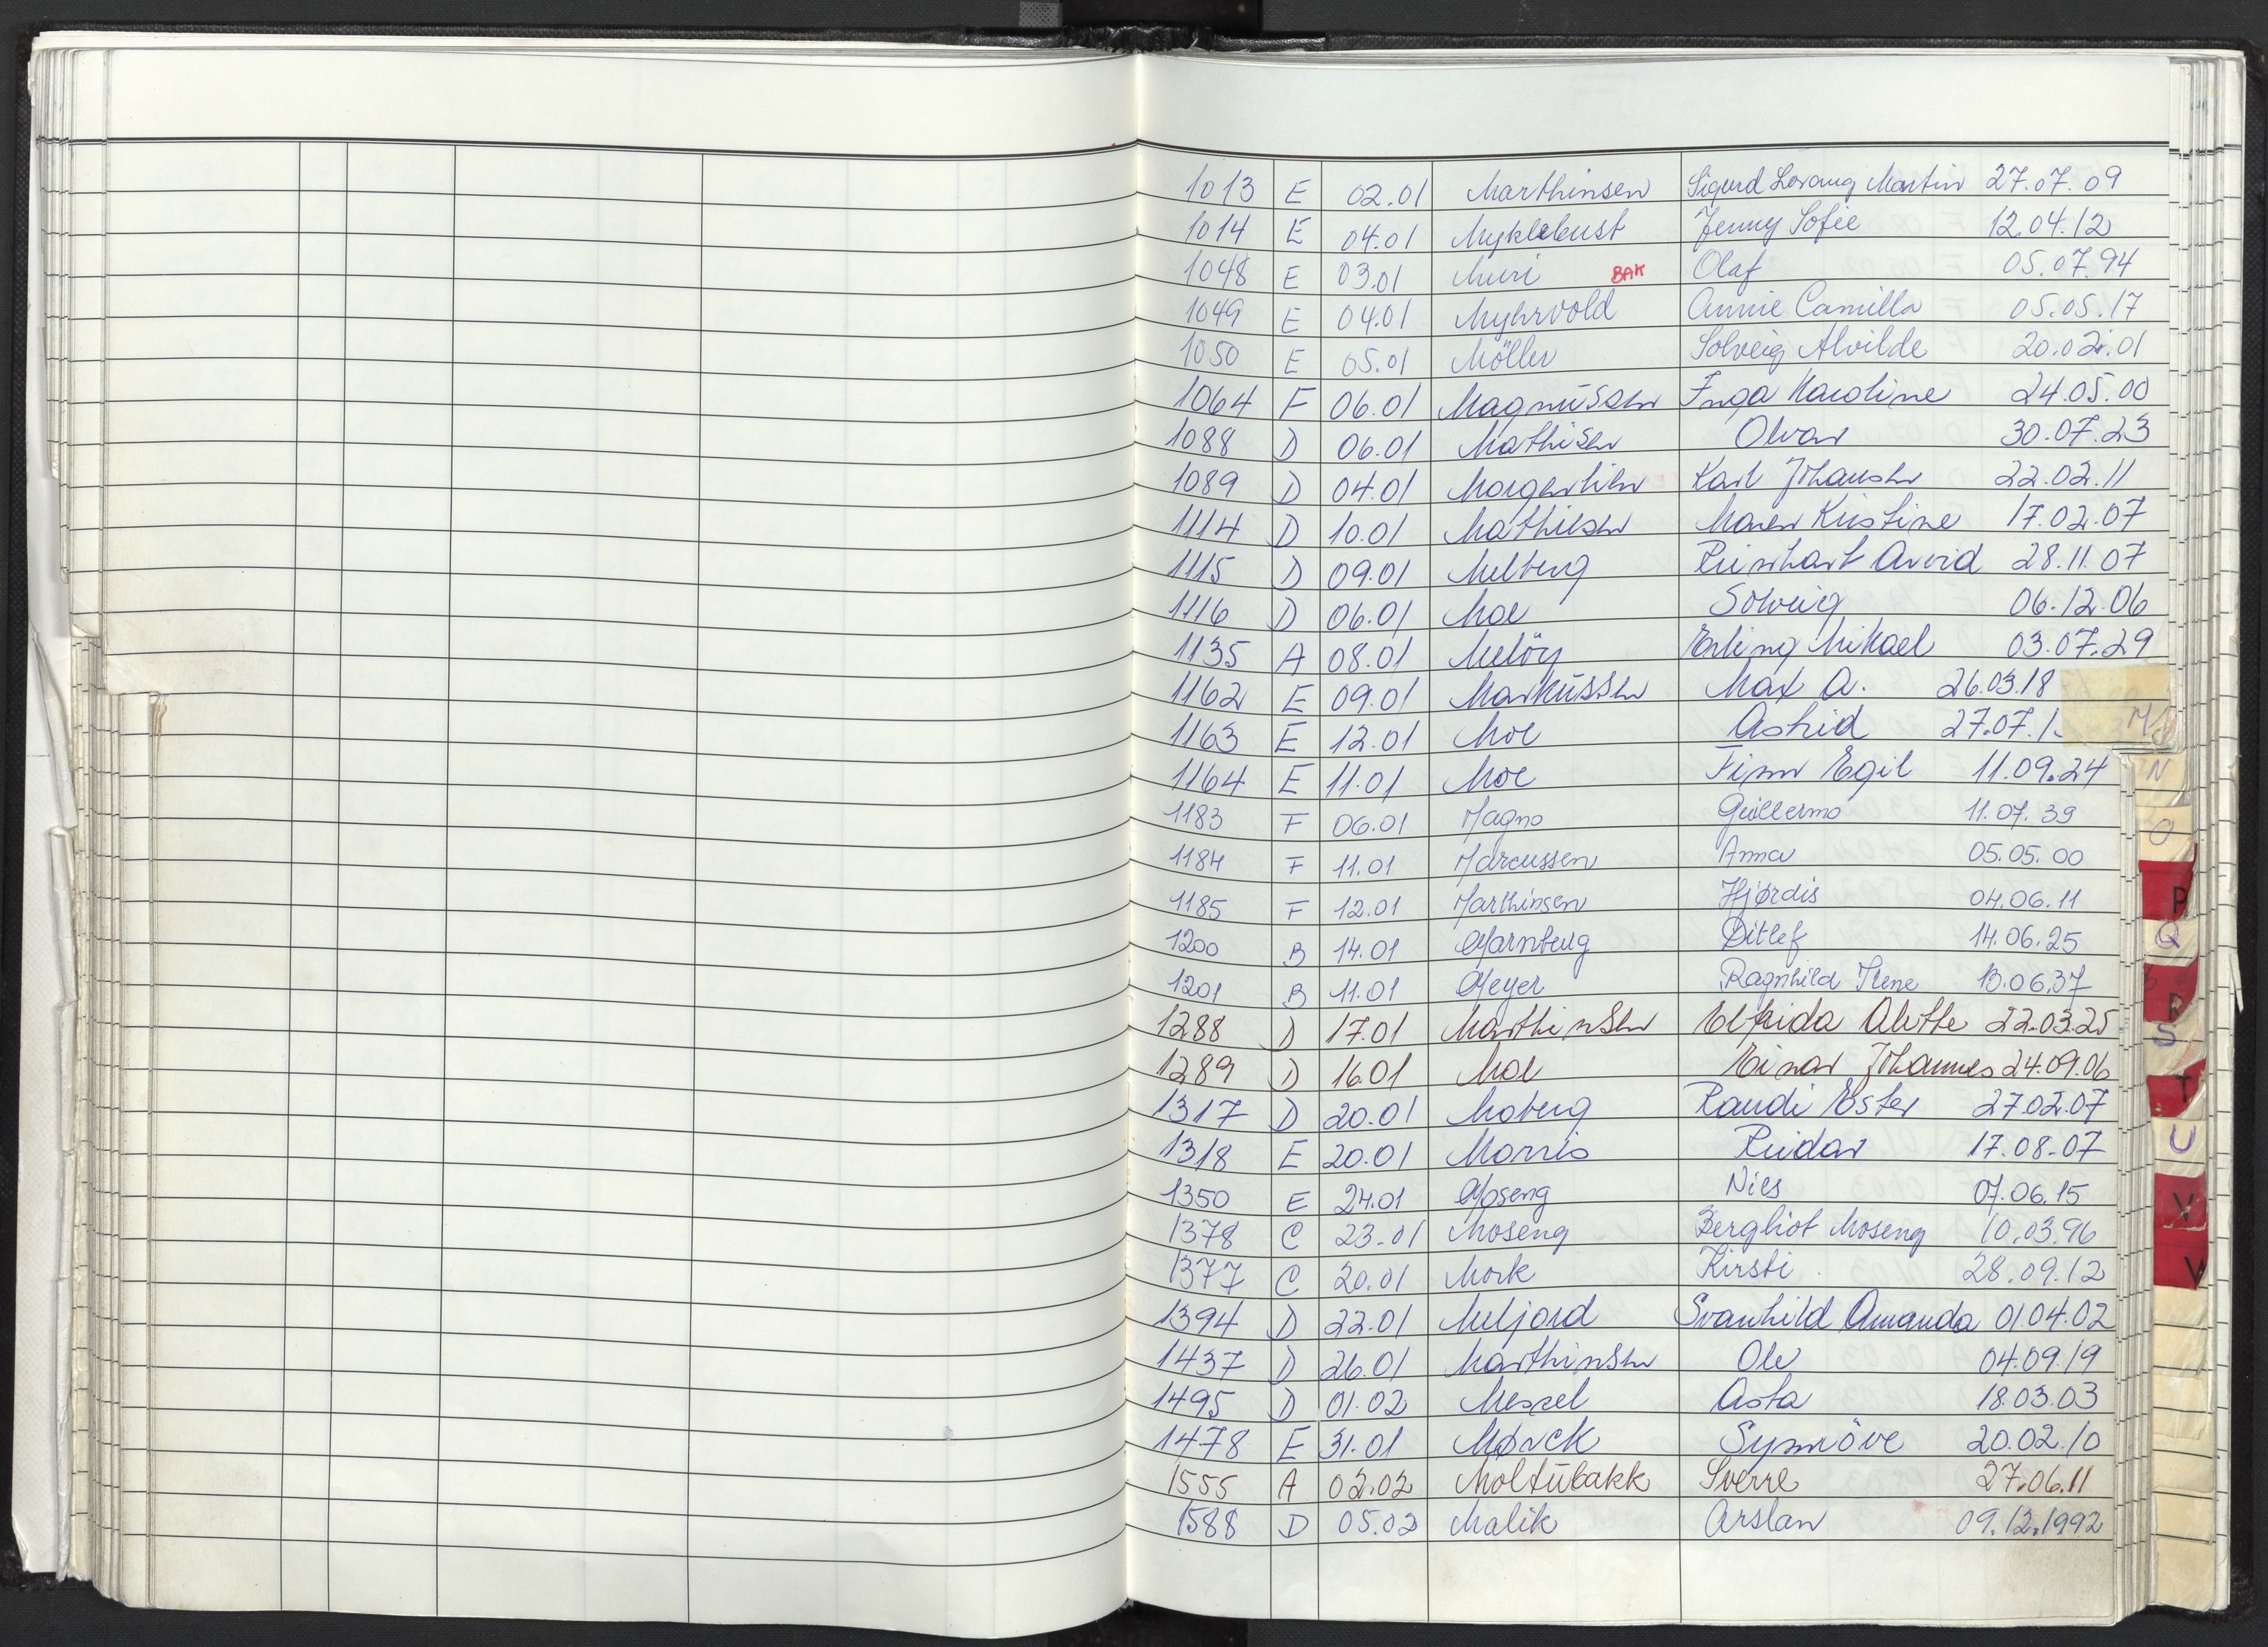 1013 E 02.01 Marthinsen Sigurd Martin 27.07.09
1014 E 04.01 Myklebust Jenny Sofie 12.04.12
1048 E 03.01 Muri BAK Olaf 05.07.94
1049 E 04.01 Myhrvold Annie Camilla 05.05.17
1050 E 05.01 Möller Solveig Alvilde 20.02.01
1064 F 06.01 Magnussen Inga Karoline 24.05.00
1088 D 06.01 Mathisen Olvar 30.07.23
1089 D 04.01 Morgenlien Karl Johansen 22.02.11
1114 D 10.01 Mathiesen Maren Kristine 17.02.07
1115 D 09.01 Melberg Reinhart Arvid 28.11.07
1116 D 06.01 Moe Solveig 06.12.06
1135 A 08.01 Melöy Erling Mikael 03.07.29
1162 E 09.01 Markussen Max A. 26.03.18
1163 E 12.01 Moe Astrid 27.07.1
M
1164 E 11.01 Moe Finn Egil 11.09.24
N
1183 F 06.01 Magno Guillermo 11.07.39
O
1184 F 11.01 Marcussen Anna 05.05.00
1185 F 12.01 Marthinsen Hjørdis 04.06.11
P
1200 B 14.01 Marnberg Ditlef 14.06.25
Q
1201 B 11.01 Meyer Ragnhild Irene 13.06.37
R
1288 D 17.01 Marthinsen Elfrida Alette 22.03.25
S
1289 D 16.01 Moe Einar Johannes 24.09.06
T
1317 D 20.01 Moberg Randi Ester 27.02.07
1318 E 20.01 Morris Reidar 17.08.07
U
1350 E 24.01 Moseng Nils 07.06.15
V
1378 C 23.01 Moseng Bergliot Moseng 10.03.96
1377 C 20.01 Mork Kirsti 28.09.12
1394 D 22.01 Meljord Svanhild Amanda 01.04.02
1437 D 26.01 Marthinsen Ole 04.09.19
1495 D 01.02 Messel Asta 18.03.03
1478 E 31.01 Mørck Synnöve 20.02.10
1555 A 02.02 Moltubakk Sverre 27.06.11
1588 D 05.02 Malik Arslan 09.12.1992